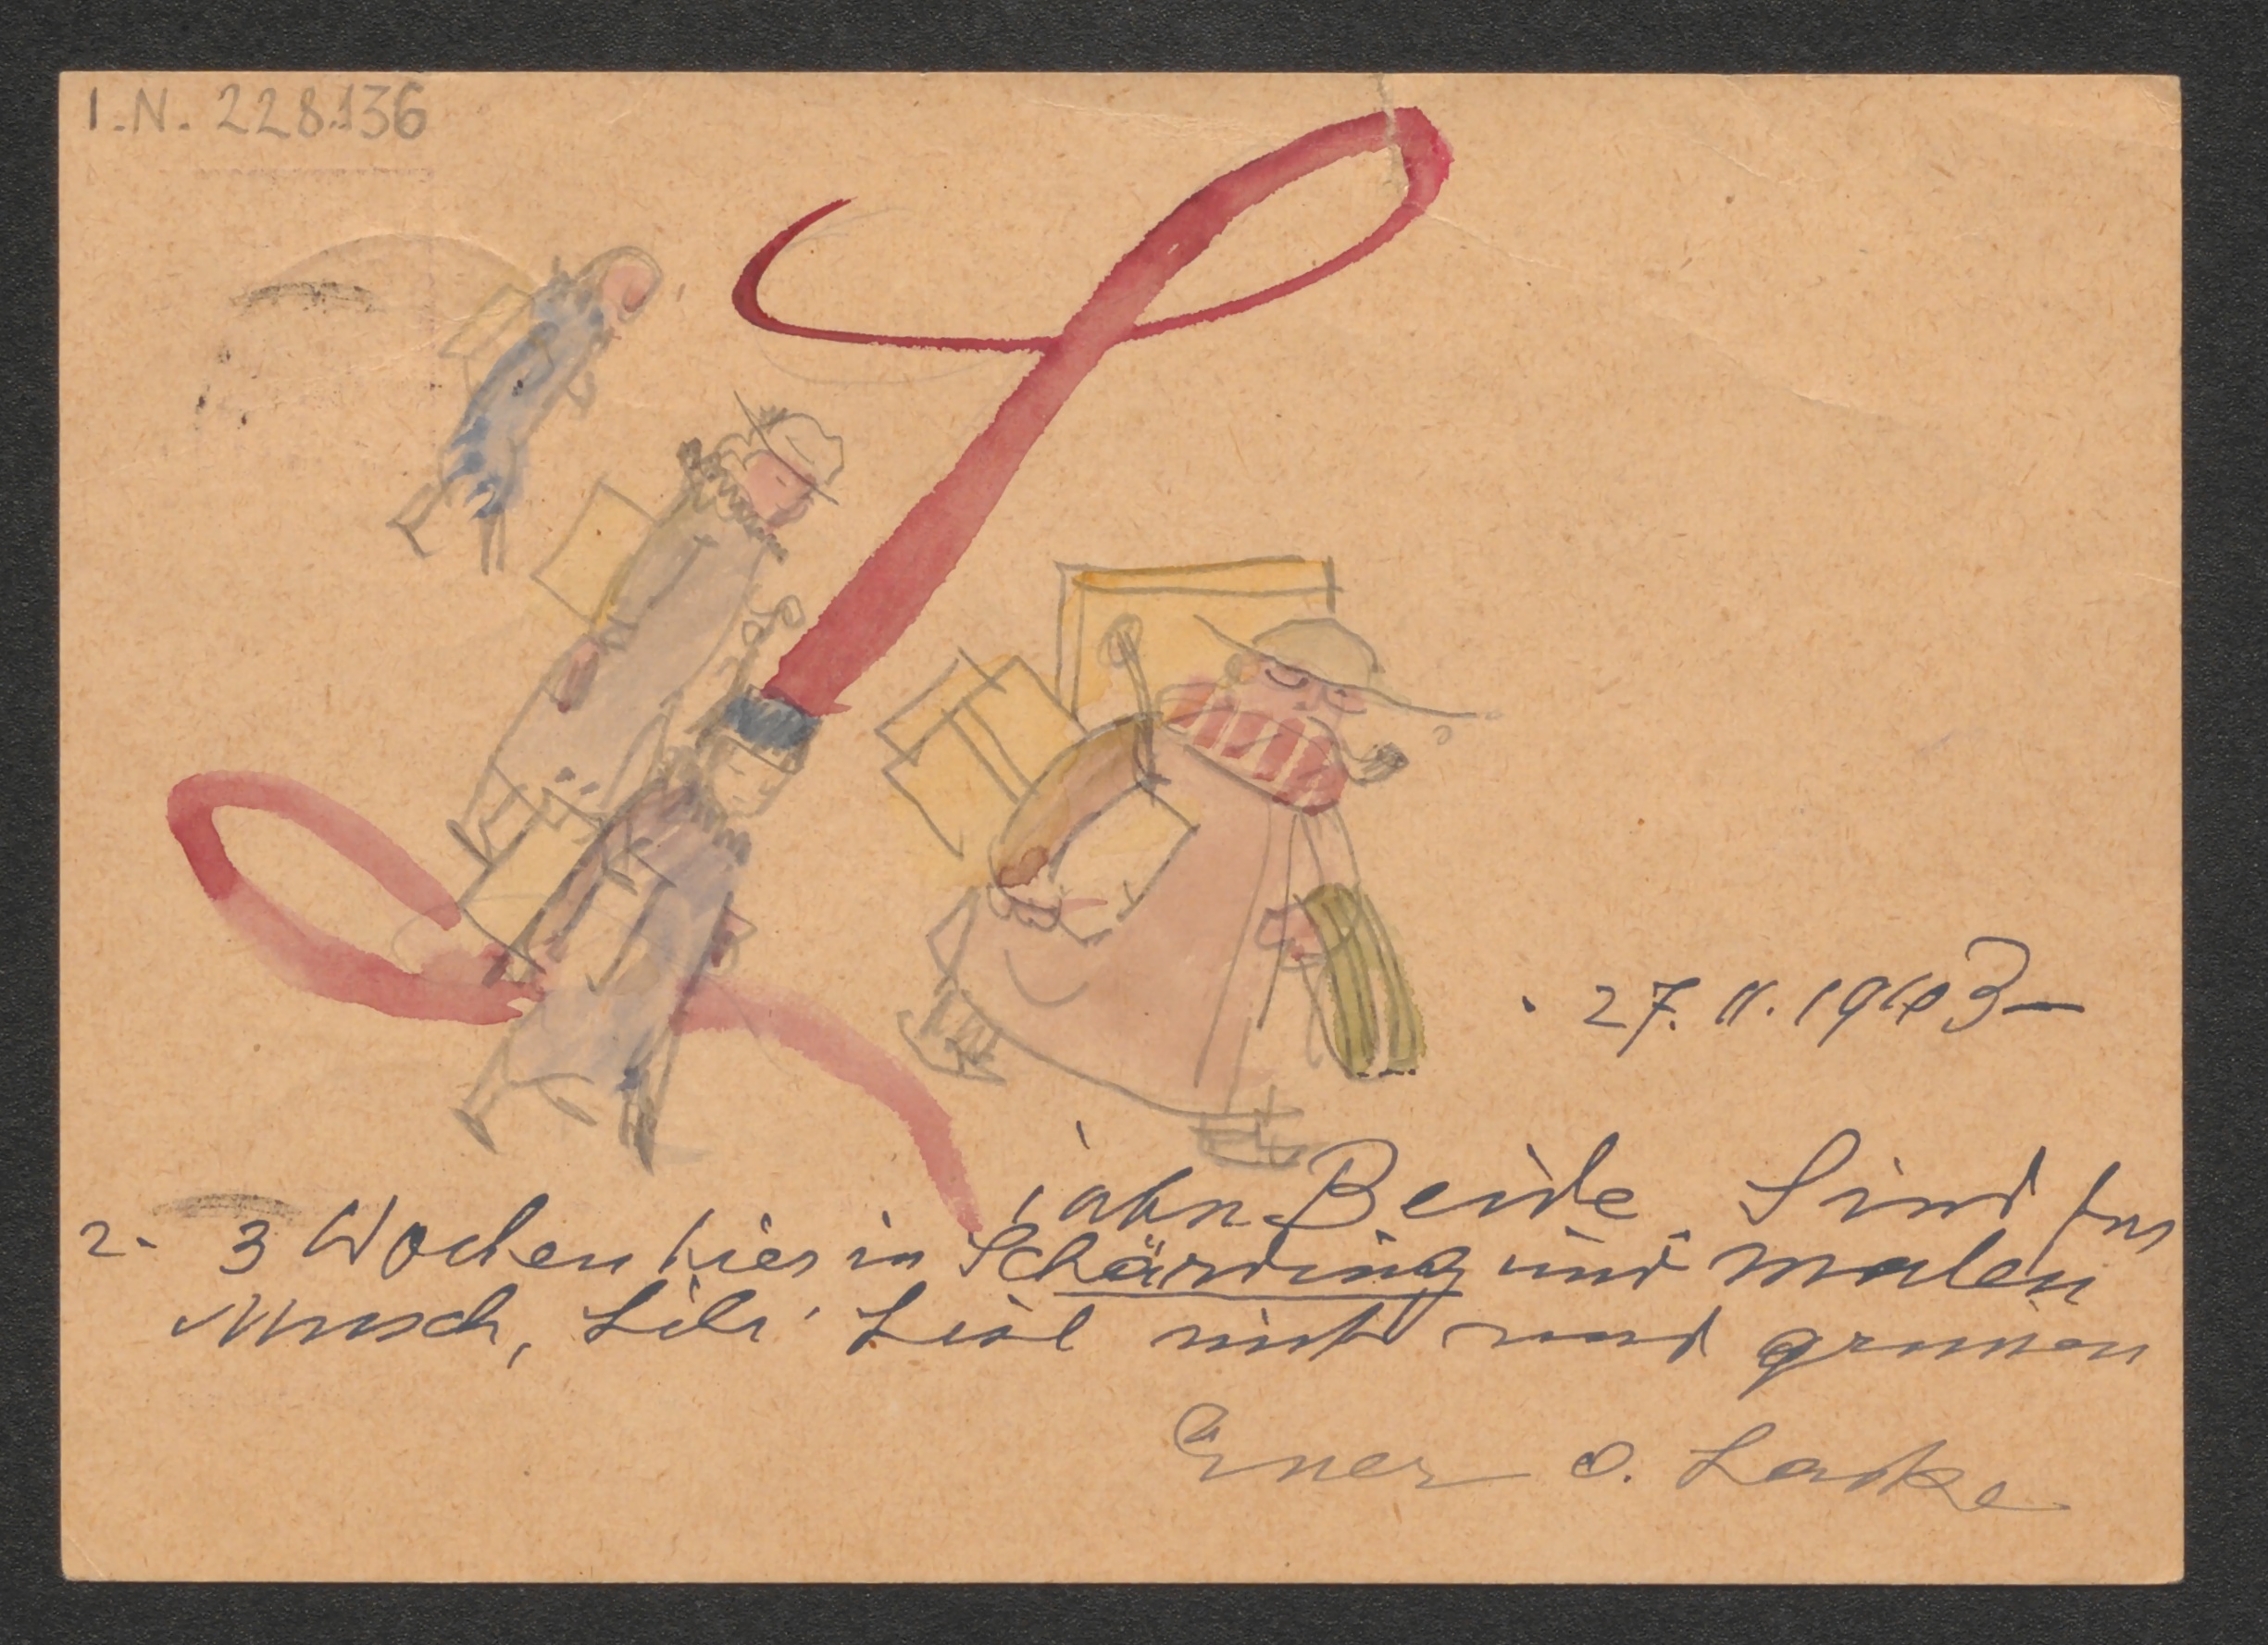 I.N. 228.136
L
27.11.1943–
iabn Beide. Sind für
2- 3 Wochen hier in Schärding und malen
Musch, Lili, Liesl mit und grüssen
Euer O. Laske